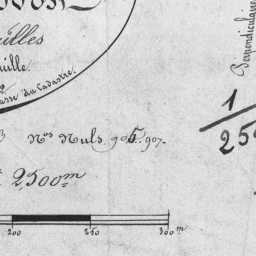 uilles
uille
du Cadastre.
Perpendiculaire
1
25
Nos Nuls. 905.907.
2500m
200 250 300 m